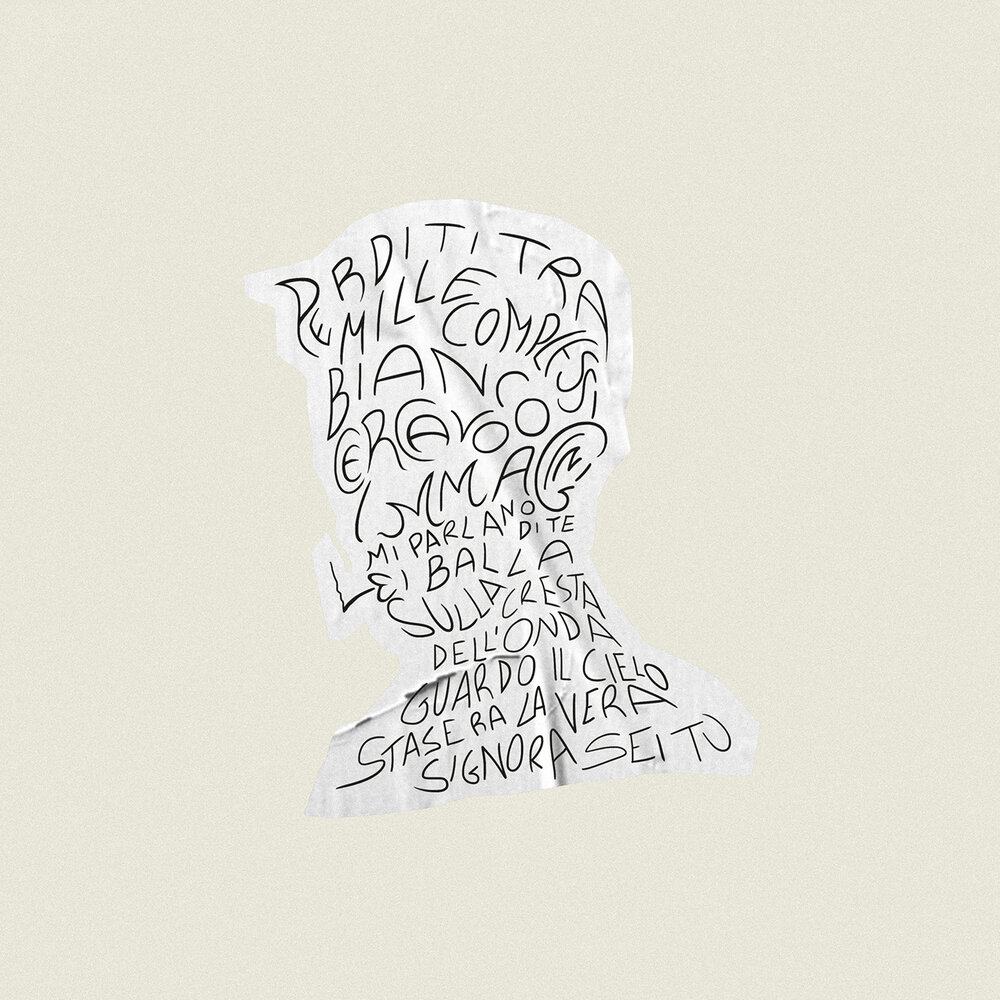 PERDITI TRA
MILLE COMPLESSI
BIANCO
CERCAVO
IMMAGINI
MI PARLANO DI TE
LEI BALLA
SULLA CRESTA
DELL'ONDA
GUARDO IL CIELO
STASERA LA VERA
SIGNORA SEI TU